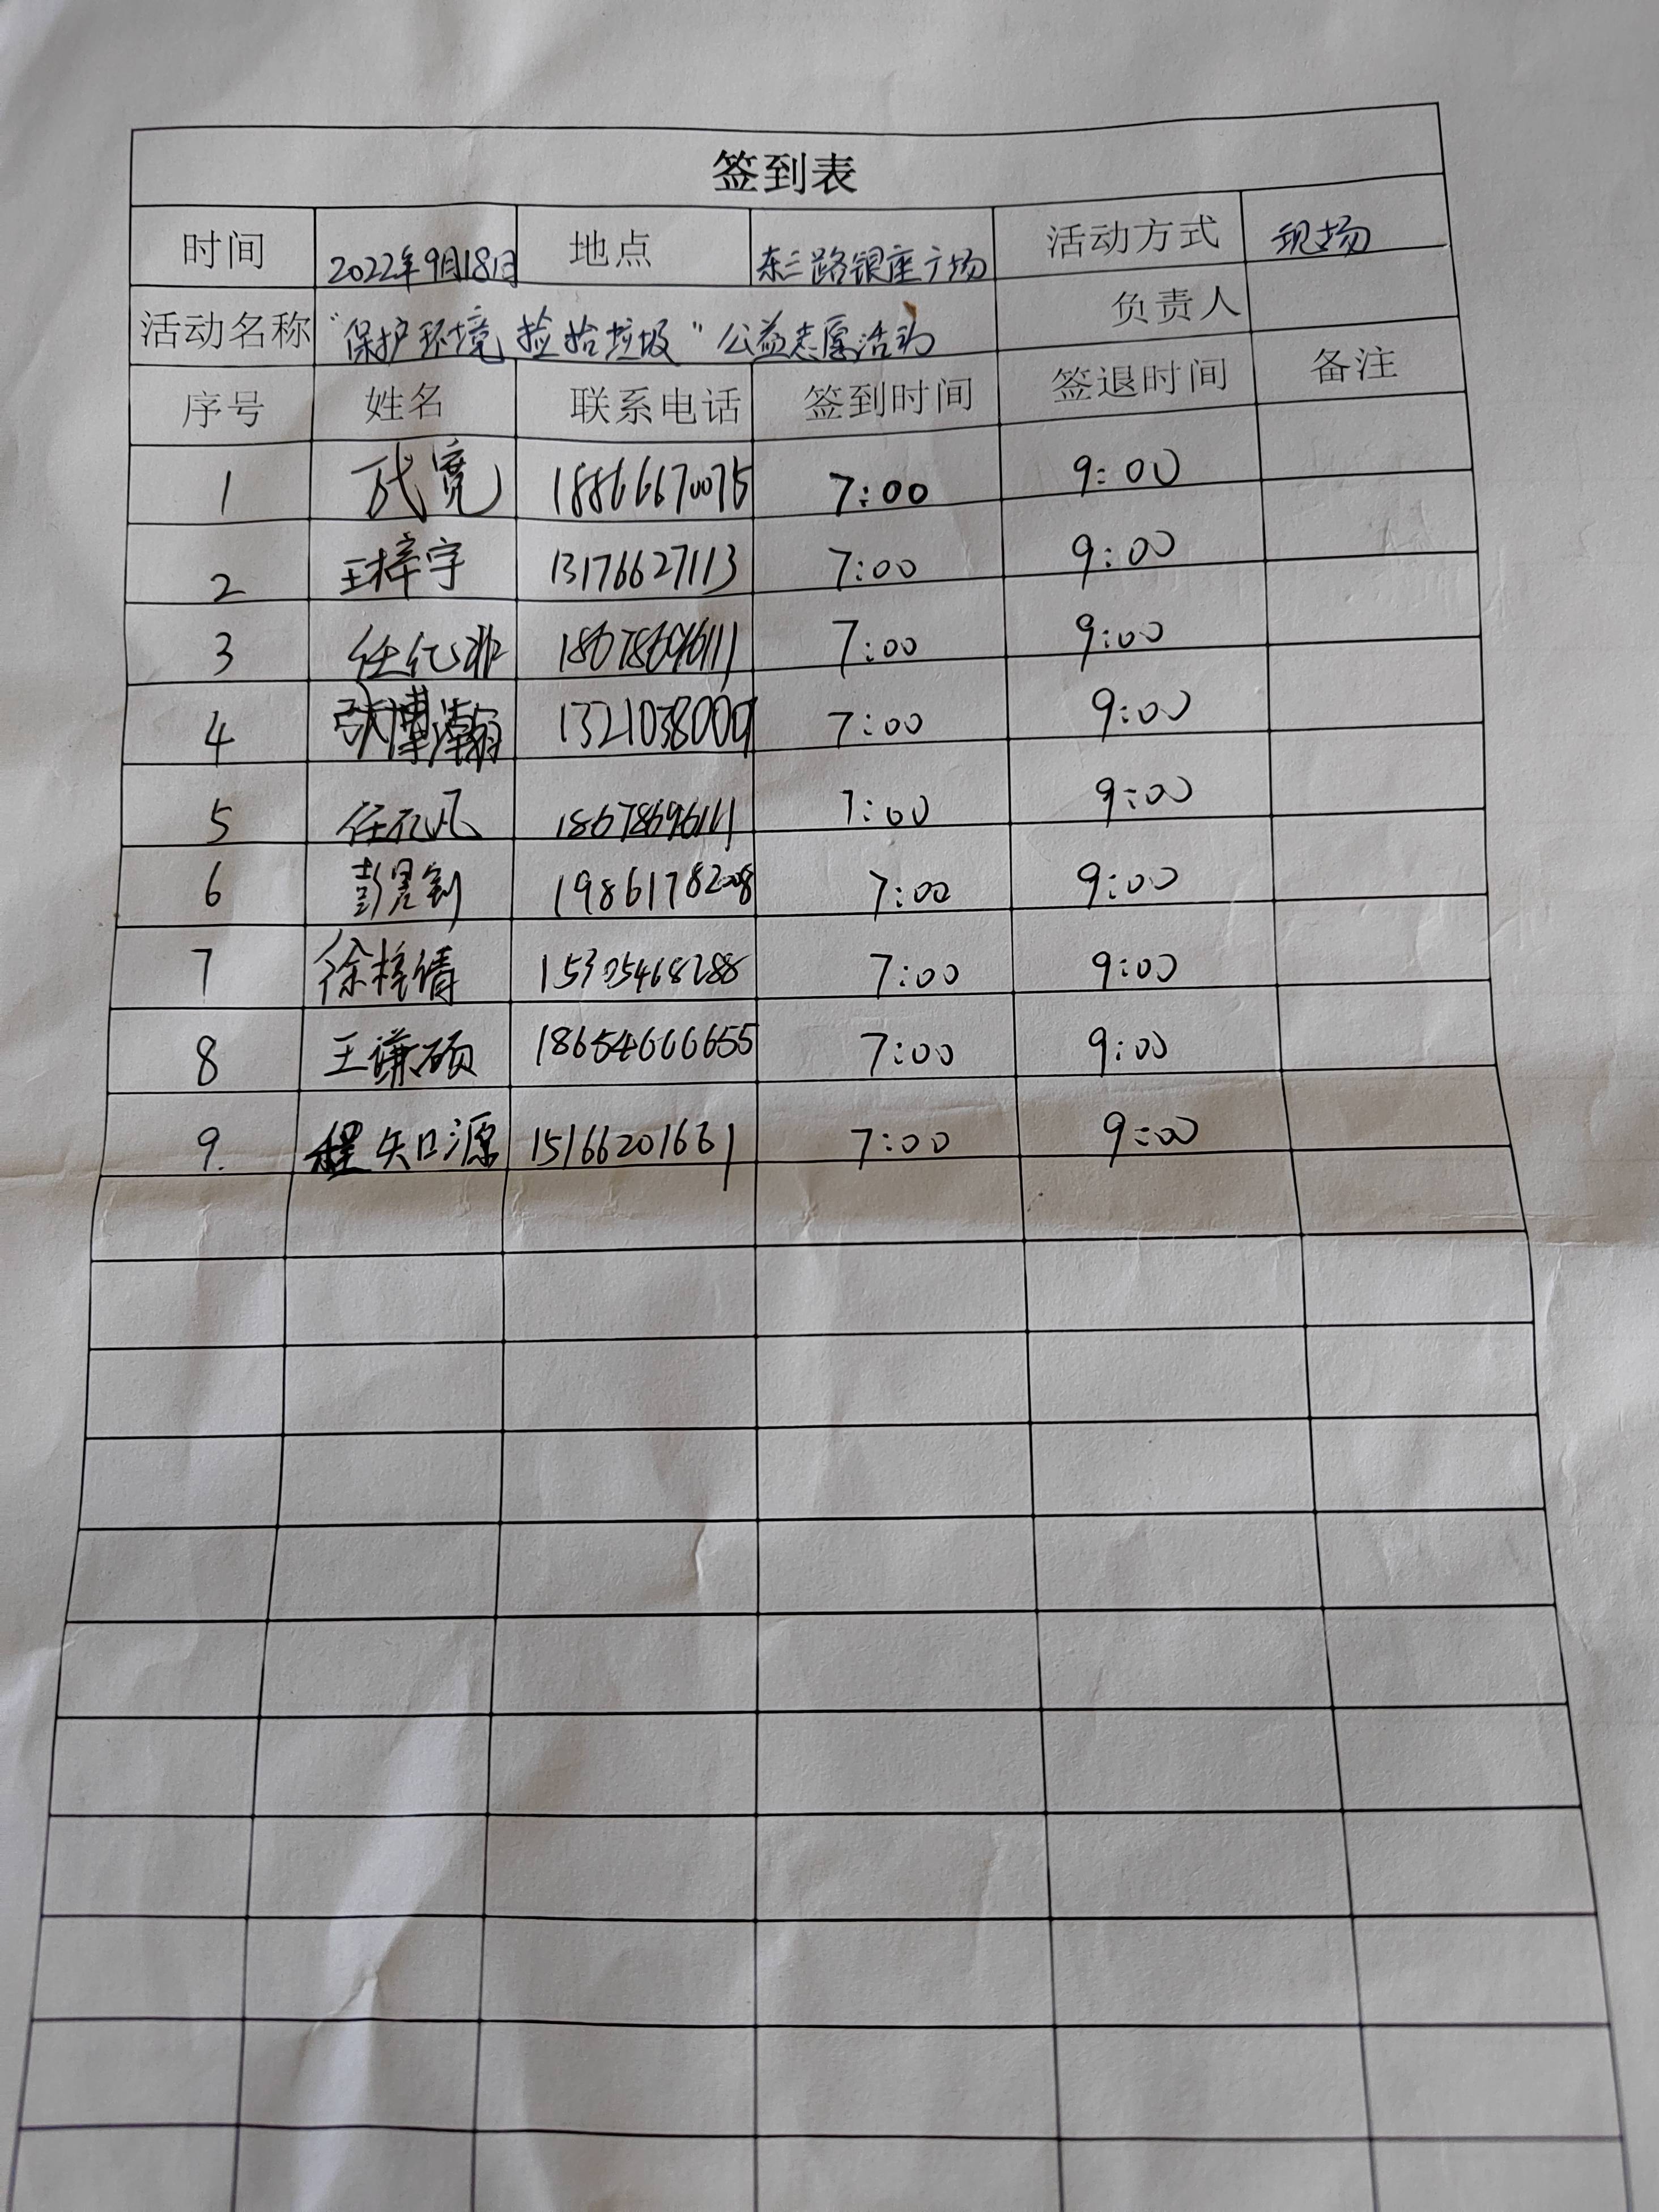 签到表
时间 2022年9月18日 地点 东三路银座广场 活动方式 现场
活动名称 "保护环境 捡拾垃圾"公益志愿活动 负责人
序号 姓名 联系电话 签到时间 签退时间 备注
1 宽 18866670075 7:00 9:00
2 王梓宇 13176627113 7:00 9:00
3 任亿非 18678696111 7:00 9:00
4 张博瀚 1321038000 7:00 9:00
5 任 18678696111 7:00 9:00
6 彭 19861782008 7:00 9:00
7 徐梓倩 15305468288 7:00 9:00
8 王谦硕 18654666655 7:00 9:00
9. 程知源 15166201661 7:00 9:00